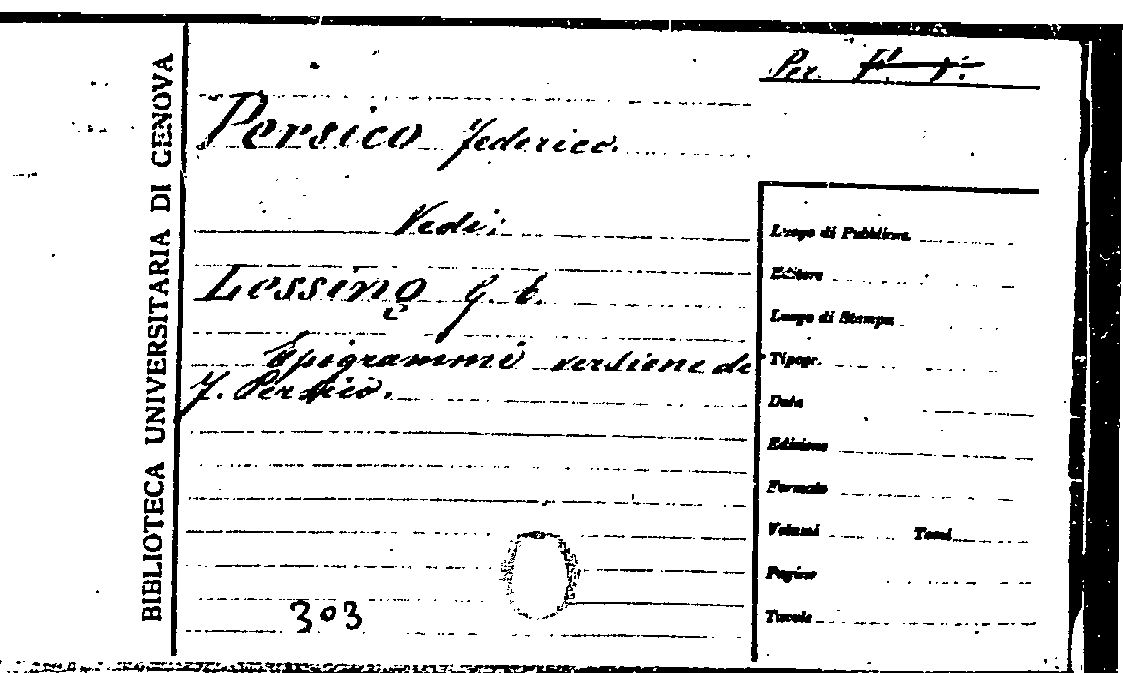 BIBLIOTECA UNIVERSITARIA DI GENOVA
Per.
Persico Federico.
Vedi:
Lessing G. E.
Epigrammi versione di
F. Persico.
303
Luogo di Pubblicaz.
Editore
Luogo di Stampa
Tipogr.
Data
Edizione
Formato
Volumi Tomi
Pagine
Tavole